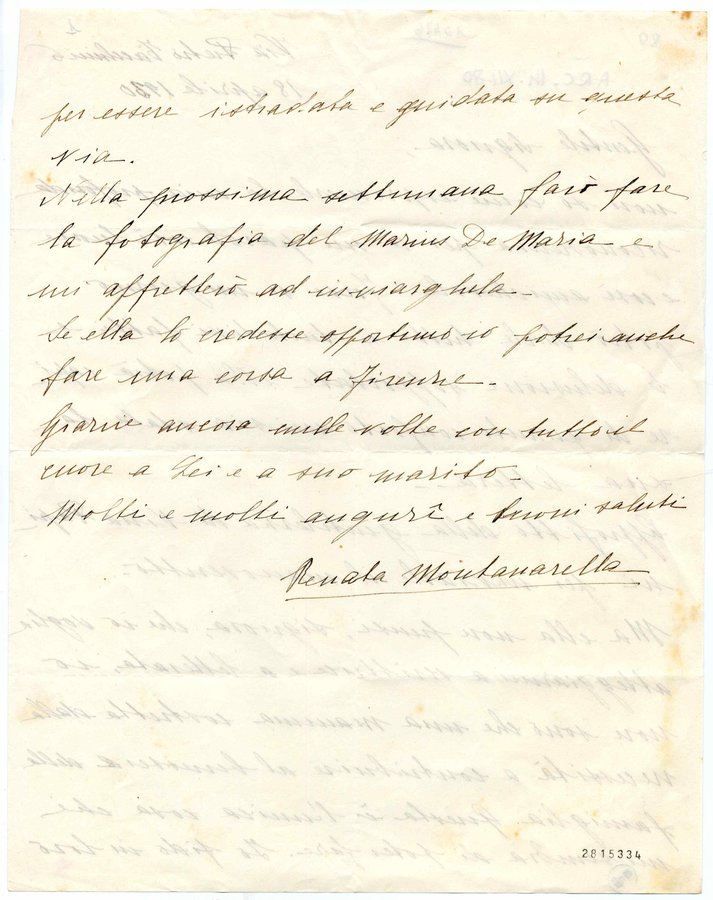 per essere istradata e guidata su questa
via.
Nella prossima settimana farò fare
la fotografia del Marius De Maria e
mi affretterò ad inviarghela.
Se ella lo credesse opportuno io potrei anche
fare una corsa a Firenze.
Grazie ancora mille volte con tutto il
cuore a Lei e a suo marito.
Molti e molti augurî e buoni saluti
Renata Montanarella
2815334